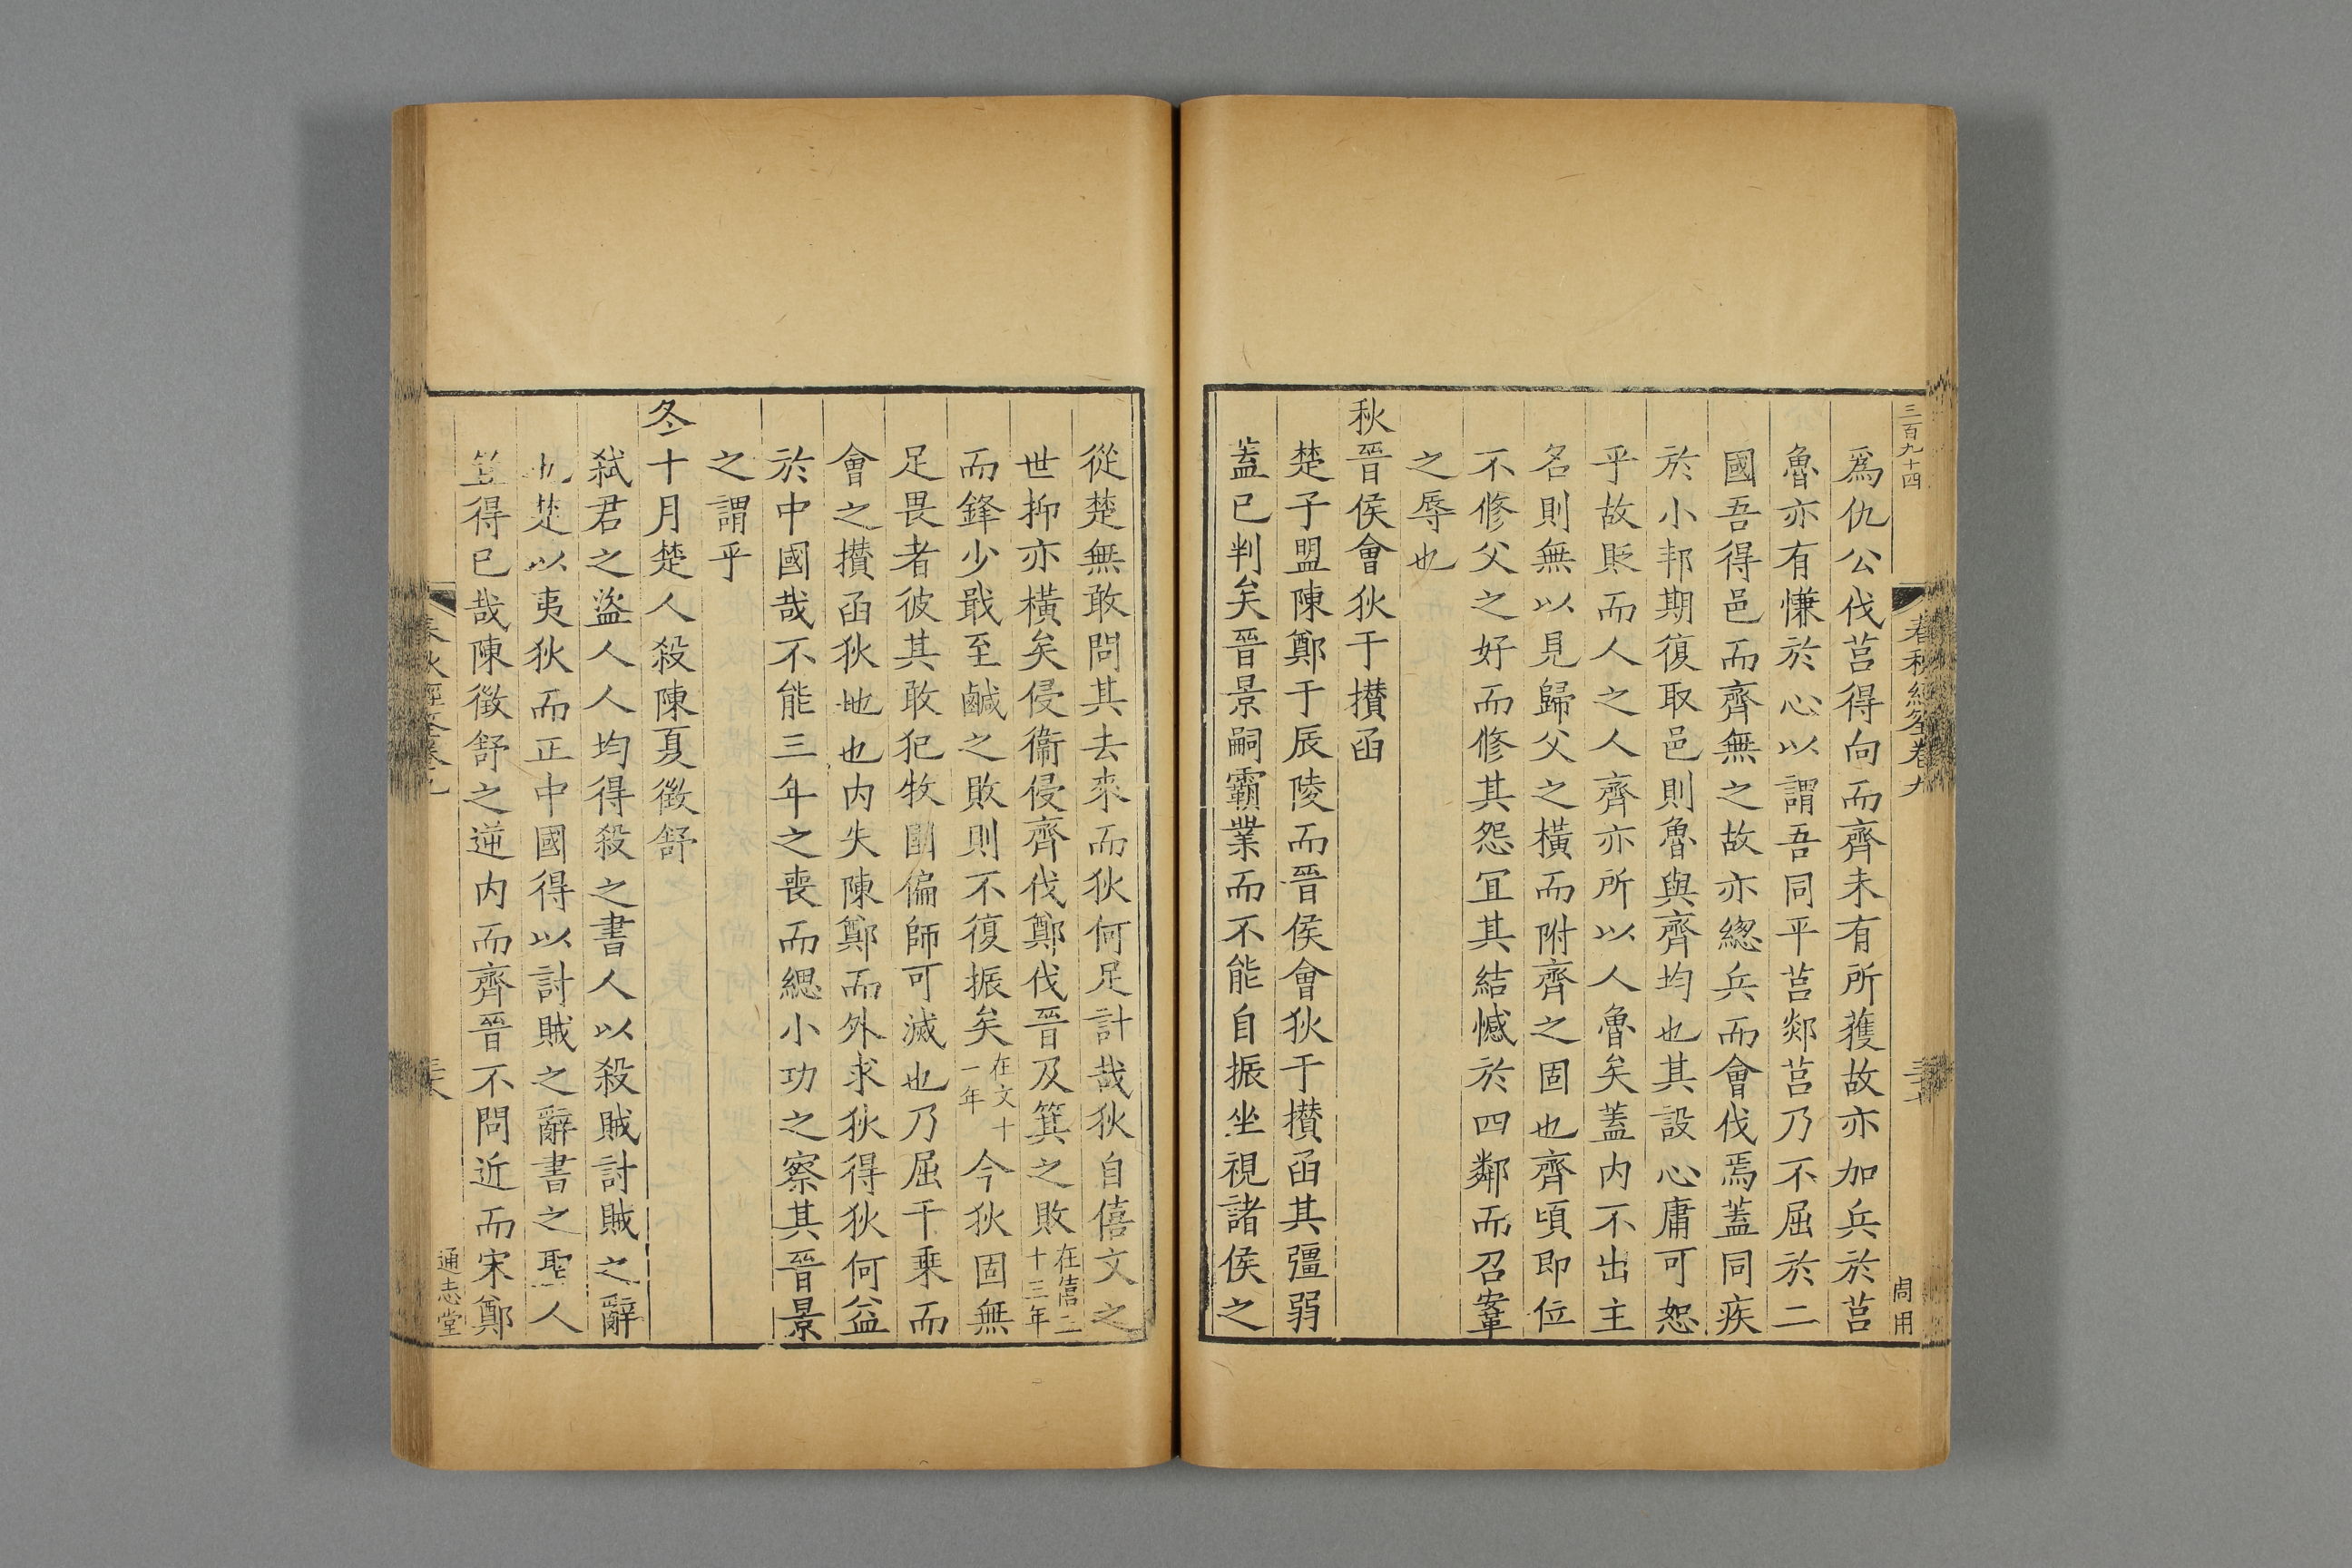 三百九十四
春秋經筌卷九
周用
爲仇公伐莒得向而齊未有所獲故亦加兵於莒
魯亦有慊於心以謂吾同平莒郯莒乃不屈於二
國吾得邑而齊無之故亦緦兵而會伐焉蓋同疾
於小邦期復取邑則魯與齊均也其設心庸可恕
乎故貶而人之人齊亦所以人魯矣蓋内不出主
名則無以見歸父之橫而附齊之固也齊頃即位
不修父之好而修其怨冝其結憾於四鄰而召鞌
之辱也
秋晉侯會狄于攢函
楚子盟陳鄭于辰陵而晉侯會狄于攢函其彊弱
蓋已判矣晉景嗣霸業而不能自振坐視諸侯之
從楚無敢問其去來而狄何足計哉狄自僖文之
世抑亦橫矣侵衞侵齊伐鄭伐晉及箕之敗在僖三十三年
而鋒少戢至鹹之敗則不復振矣在文十一年今狄固無
足畏者彼其敢犯牧圉偏師可滅也乃屈千乗而
會之攢函狄地也内失陳鄭而外求狄得狄何益
於中國哉不能三年之喪而緦小功之察其晉景
之謂乎
冬十月楚人殺陳夏徵舒
弑君之盜人人均得殺之書人以殺賊討賊之辭
也楚以夷狄而正中國得以討賊之辭書之聖人
豈得已哉陳徵舒之逆内而齊晉不問近而宋鄭
春秋經筌卷九
通志堂